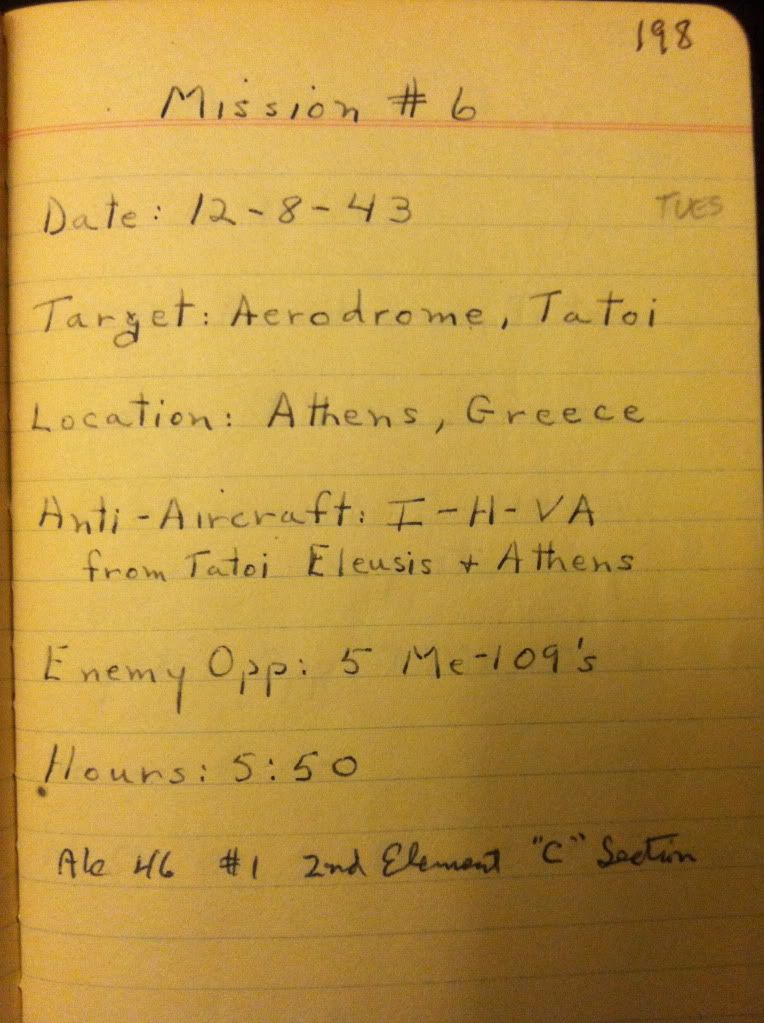 198
Mission # 6
Date: 12-8-43 TUES
Target: Aerodrome, Tatoi
Location: Athens, Greece
Anti-Aircraft: I-H-VA
from Tatoi Eleusis + Athens
Enemy Opp: 5 Me-109's
Hours: 5:50
46 #1 2nd Element "C" Section